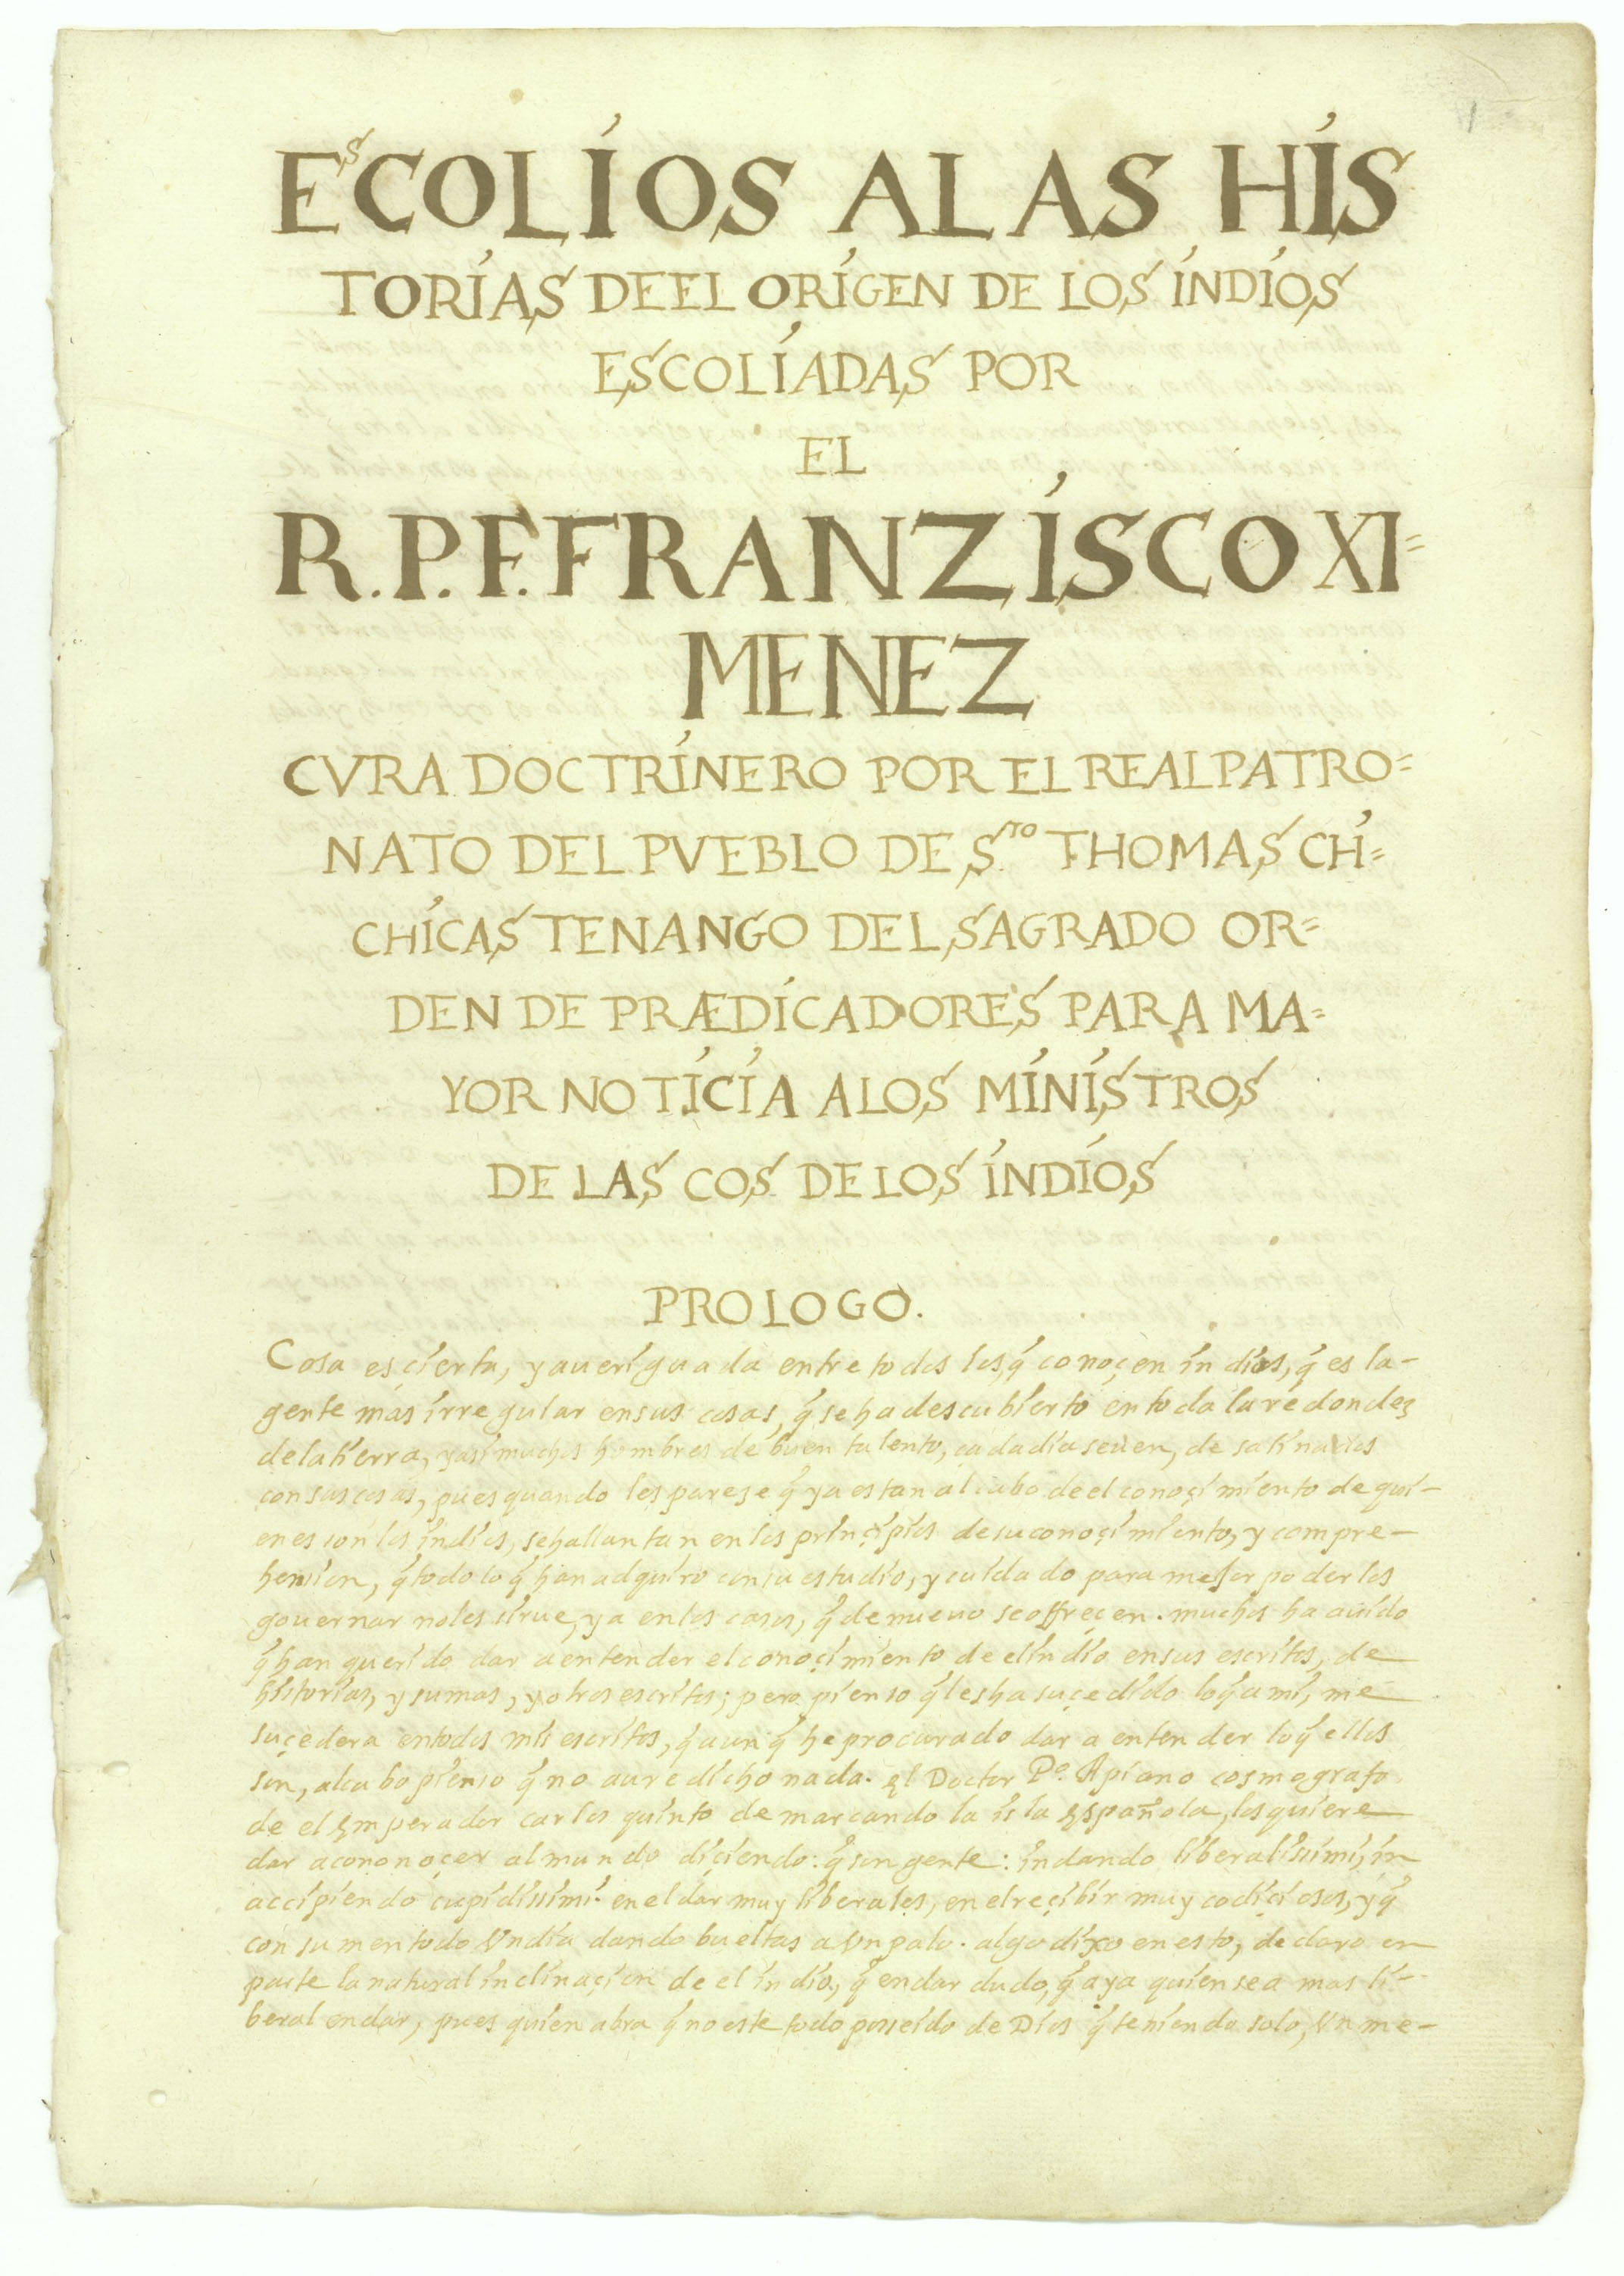 1
EsCOLIOS ALAS HIS
TORIAS DEEL ORIGEN DE LOS INDIOS
ESCOLIADAS POR
EL
R.P.F.FRANZISCO XI=
MENEZ
CVRA DOCTRINERO POR EL REAL PATRO=
NATO DEL PVEBLO DE S.TO THOMAS CHI=
CHICASTENANGO DEL SAGRADO OR=
DEN DE PRÆDICADORES PARA MA=
YOR NOTICIA ALOS MINISTROS
DE LAS COS DE LOS INDIOS
PROLOGO.
Cosa es çierta, y aueriguada entre todos los q̃ conoçen indios, q̃ es la-
gente mas irregular ensus cosas, q̃ se ha descubierto en toda la redondez
dela tierra, y asi muchos hombres de buen talento, cada dia se uen, desatinados
con sus cosas, pues quando les pareze q̃ ya estan al cabo de el conoçimiento de qui-
enes son los indios, se hallan tan en los prinçipios de su conoçimiento, y compre-
hension, q̃ todo lo q̃ han adquiro con su estudio, y cuidado para mejor poderlos
gouernar no les sirue, ya en los casos, q̃ de nueuo se offreçen. muchos ha auido
q̃ han querido dar a entender el conoçimiento de el indio ensus escritos, de
historias, y sumas, y otros escritos; pero pienso q̃ les ha suçedido lo q̃ a mi, me
suçedera entodos mis escritos, q̃ aun q̃ he procurado dar a entender lo q̃ ellos
son, alcabo pienso q̃ no aure dicho nada. El Doctor P.o Apiano cosmografo
de el Emperador carlos quinto demarcando la isla Española, los quiere
dar acononoçer al mundo diçiendo: q̃ son gente: indando liberalissimi, in
accipiendo cupidissimi. en el dar muy liberales, en el reçibir muy codiçiosos, y q̃
consumen todo Vn dia dando bueltas a Vn palo. algo dixo en esto, declaro en
parte la natural inclinaçion de el indio, q̃ en dar dudo, q̃ aya quien sea mas li-
beral endar, pues quien abra q̃ no este todo posseido de Dios q̃ teniendo solo, Vn me-